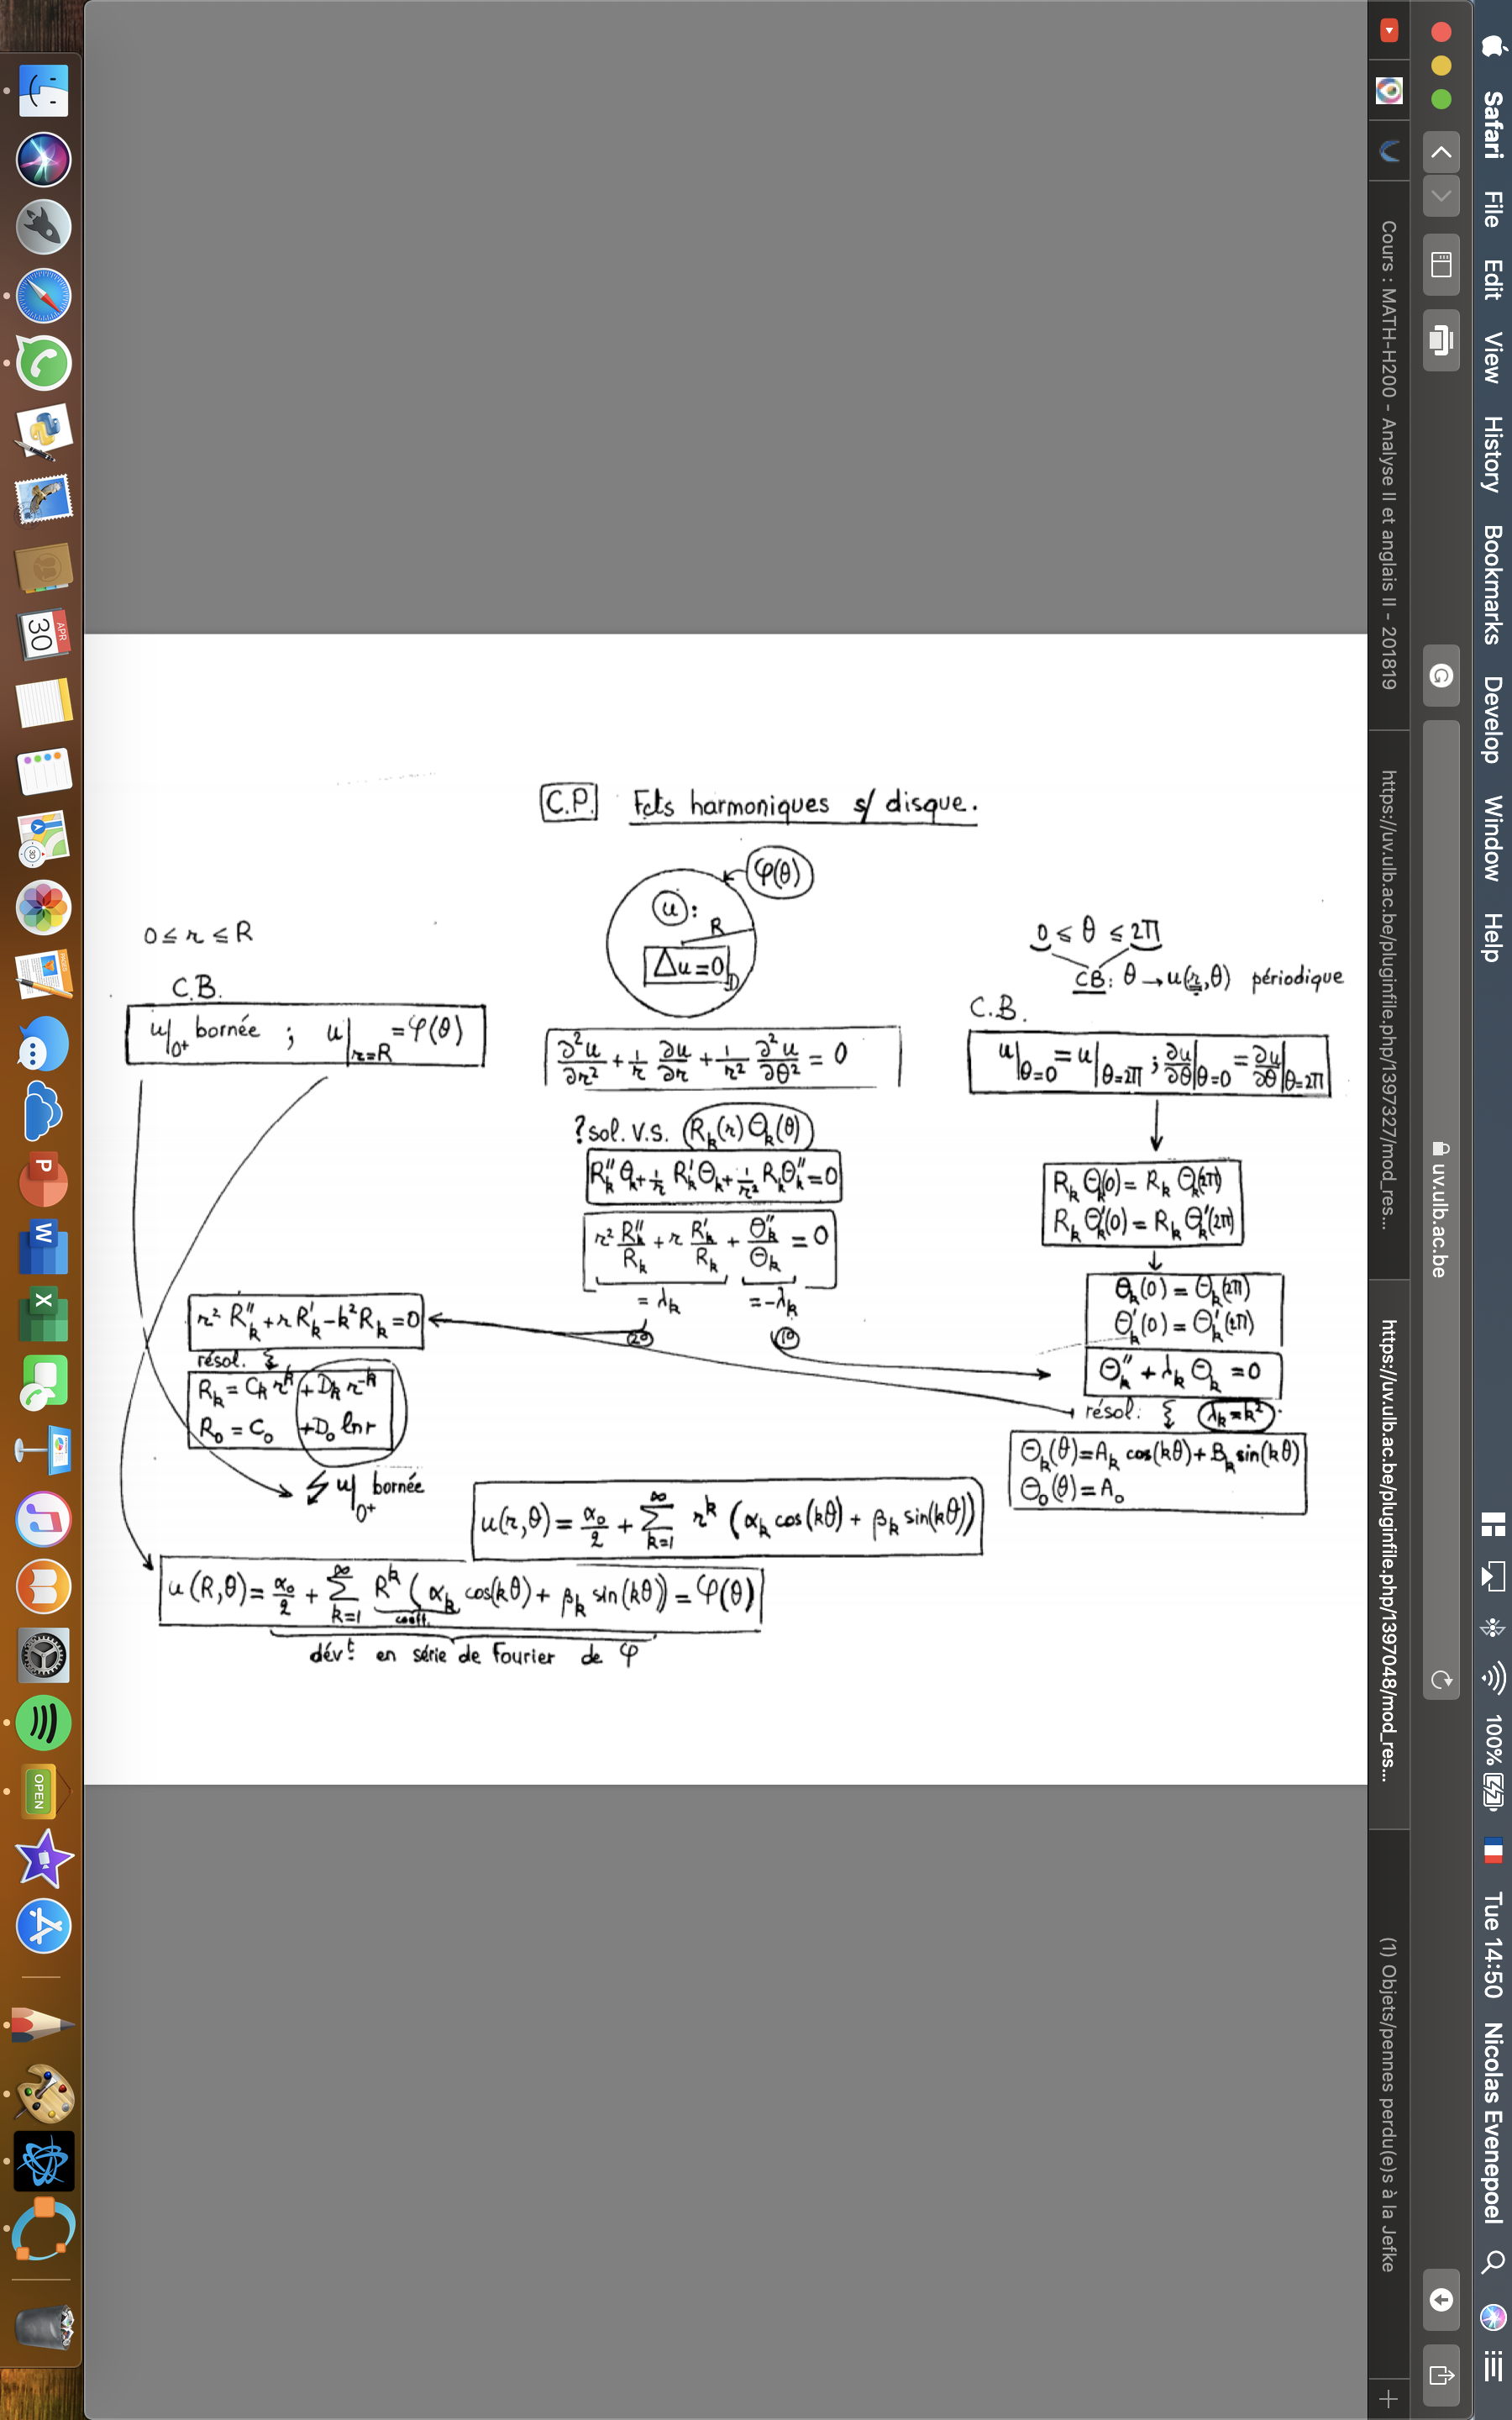 Safari File Edit View History Bookmarks Develop Window Help 100% Tue 14:50 Nicolas Evenepoel
uv.ulb.ac.be
Cours : MATH-H200 - Analyse II et anglais II - 201819
https://uv.ulb.ac.be/pluginfile.php/1397327/mod_res...
https://uv.ulb.ac.be/pluginfile.php/1397048/mod_res...
(1) Objets/pennes perdu(e)s à la Jefke
C.P. Fcts harmoniques s/ disque.
φ(θ)
u :
R
Δu=0 D
0 ≤ r ≤ R
C.B.
u|0+ bornée ; u|r=R = φ(θ)
0 ≤ θ ≤ 2π
CB: θ → u(r,θ) périodique
C.B.
u|θ=0 = u|θ=2π ; ∂u/∂θ|θ=0 = ∂u/∂θ|θ=2π
∂²u/∂r² + 1/r ∂u/∂r + 1/r² ∂²u/∂θ² = 0
? sol. v.s. Rk(r) Θk(θ)
Rk'' Θk + 1/r Rk' Θk + 1/r² Rk Θk'' = 0
r² Rk''/Rk + r Rk'/Rk + Θk''/Θk = 0
= λk = -λk
2° 1°
Rk Θk(0) = Rk Θk(2π)
Rk Θk'(0) = Rk Θk'(2π)
Θk(0) = Θk(2π)
Θk'(0) = Θk'(2π)
Θk'' + λk Θk = 0
résol: { λk = k²
Θk(θ) = Ak cos(kθ) + Bk sin(kθ)
Θ0(θ) = A0
r² Rk'' + r Rk' - k² Rk = 0
résol. {
Rk = Ck r^k + Dk r^-k
R0 = C0 + D0 ln r
u|0+ bornée
u(r,θ) = α0/2 + ∞∑k=1 r^k (αk cos(kθ) + βk sin(kθ))
u(R,θ) = α0/2 + ∞∑k=1 R^k (αk cos(kθ) + βk sin(kθ)) = φ(θ)
coeff.
dévt en série de Fourier de φ
APR
30
3D
PAGES
P
W
X
OPEN